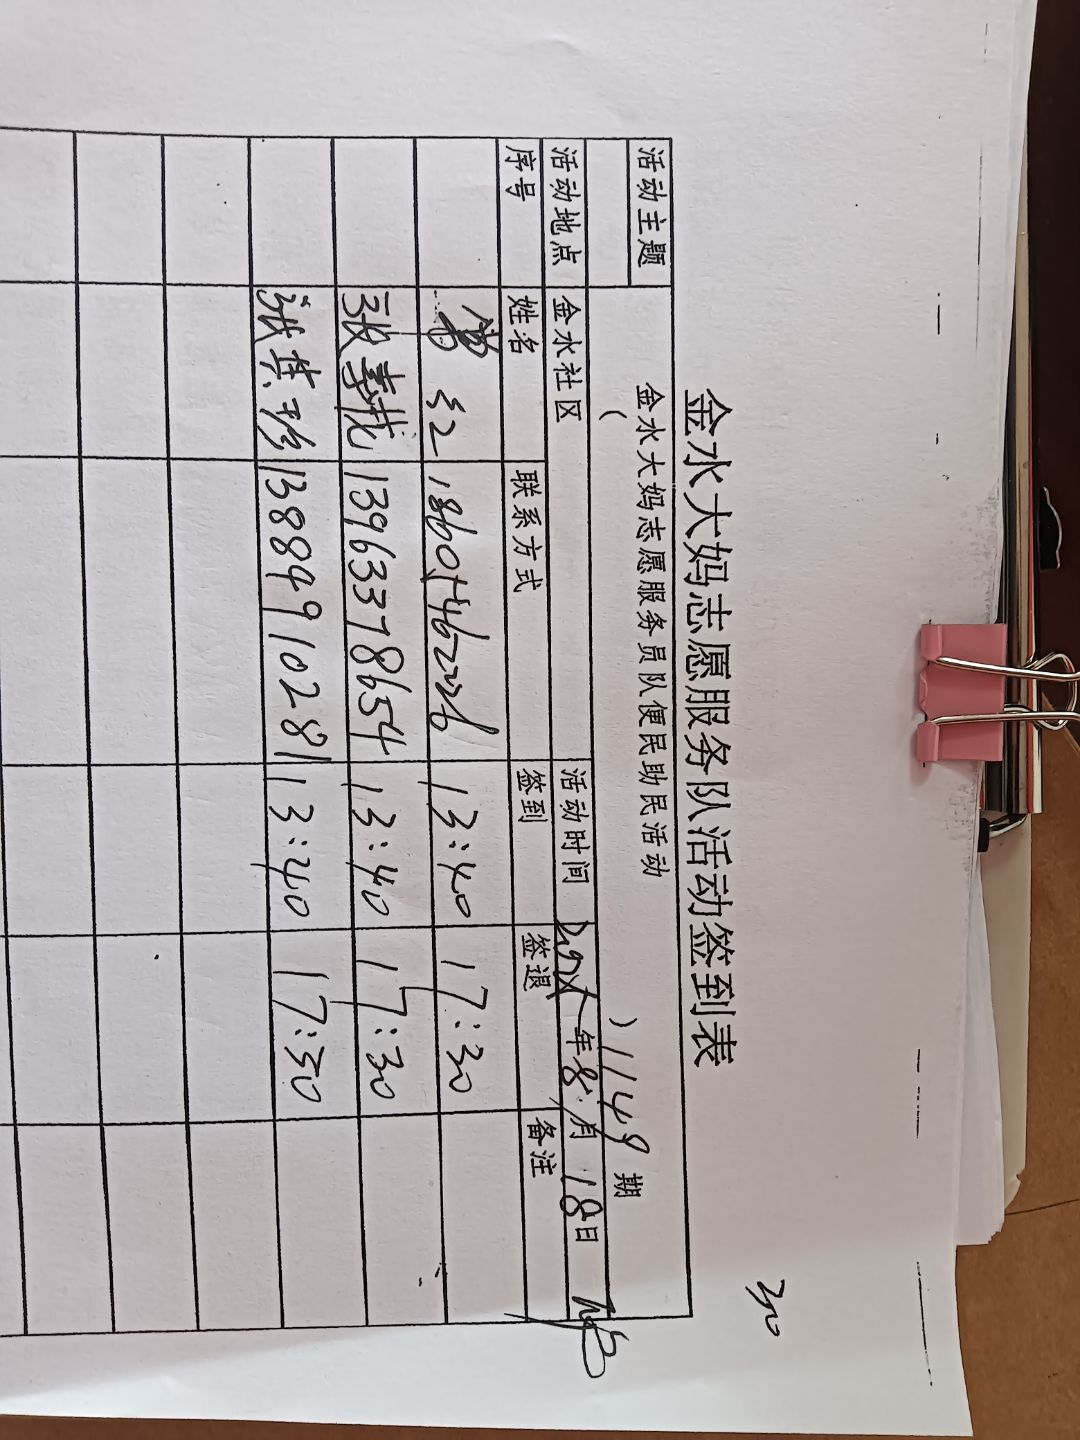 金水大妈志愿服务队活动签到表
活动主题 金水大妈志愿服务员队便民助民活动
( ) 1149 期
活动地点 金水社区 活动时间 年 8 月 18 日
序号 姓名 联系方式 签到 签退 备注
13:40 17:30
张 13963378654 13:40 17:30
张 13884910281 13:40 17:30